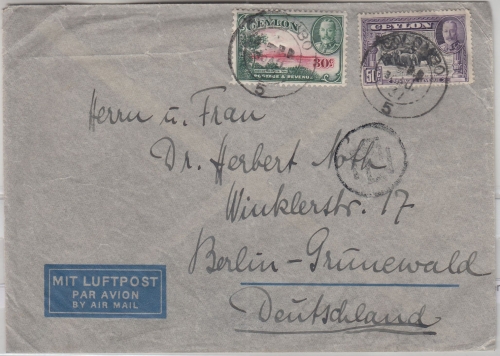 CEYLON
30c
POSTAGE & REVENUE
CEYLON
50c
COLOMBO
5
COLOMBO
5
Herrn u. Frau
Dr. Herbert Moth
Winklerstr. 17
Berlin-Grunewald
Deutschland
MIT LUFTPOST
PAR AVION
BY AIR MAIL